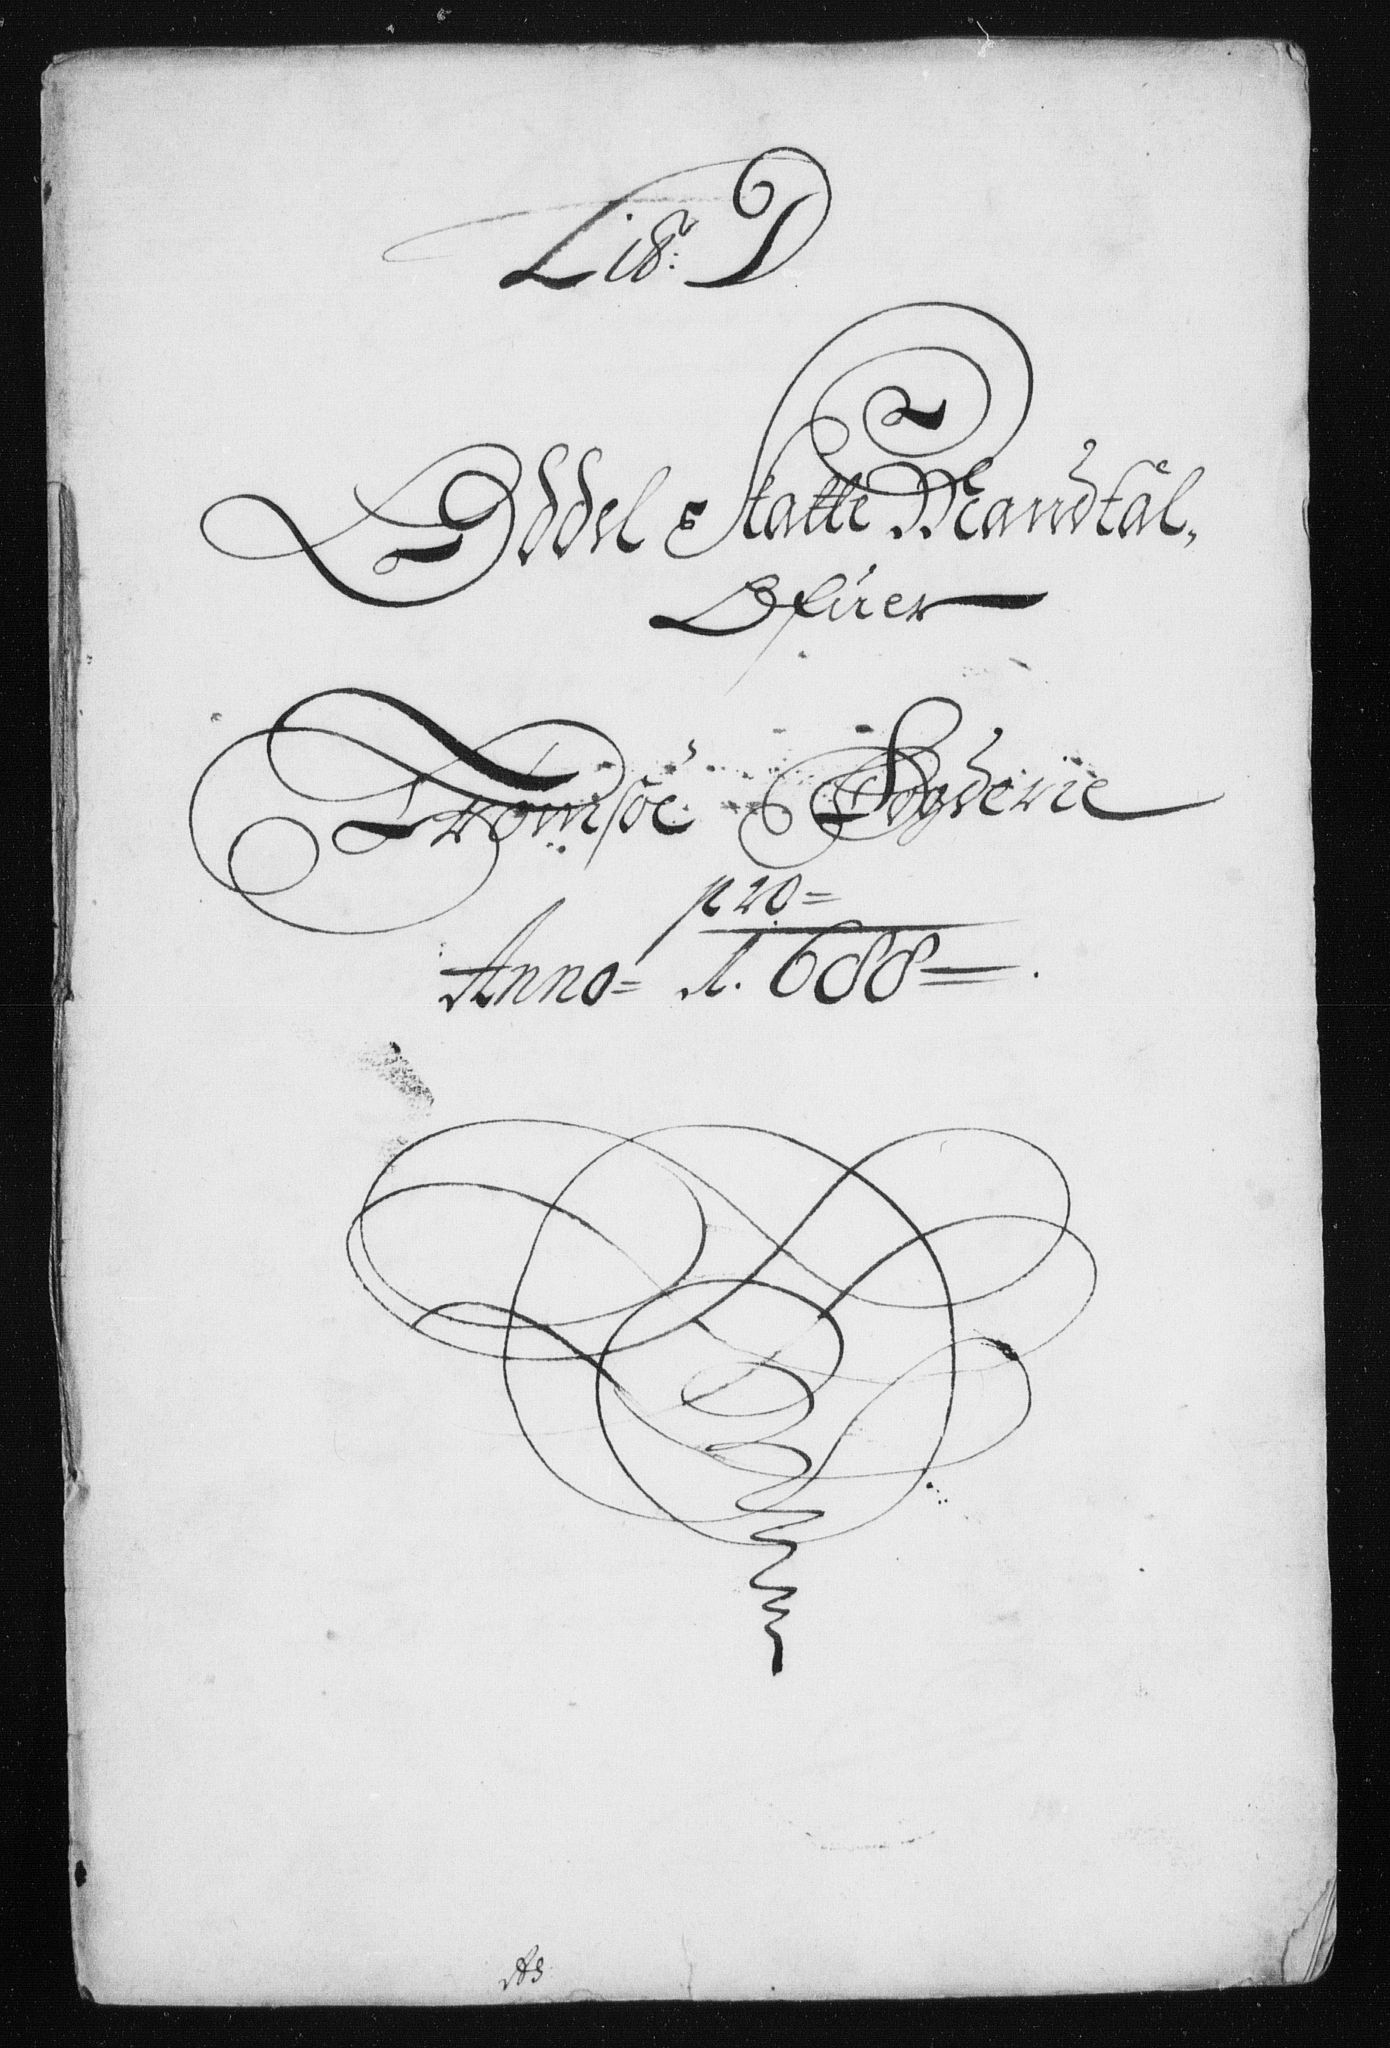 Lib: D
Oddel Skatte Mandtal,
Ofuer
Tromsøe Fogderie
pro=
Anno= 1.688=.